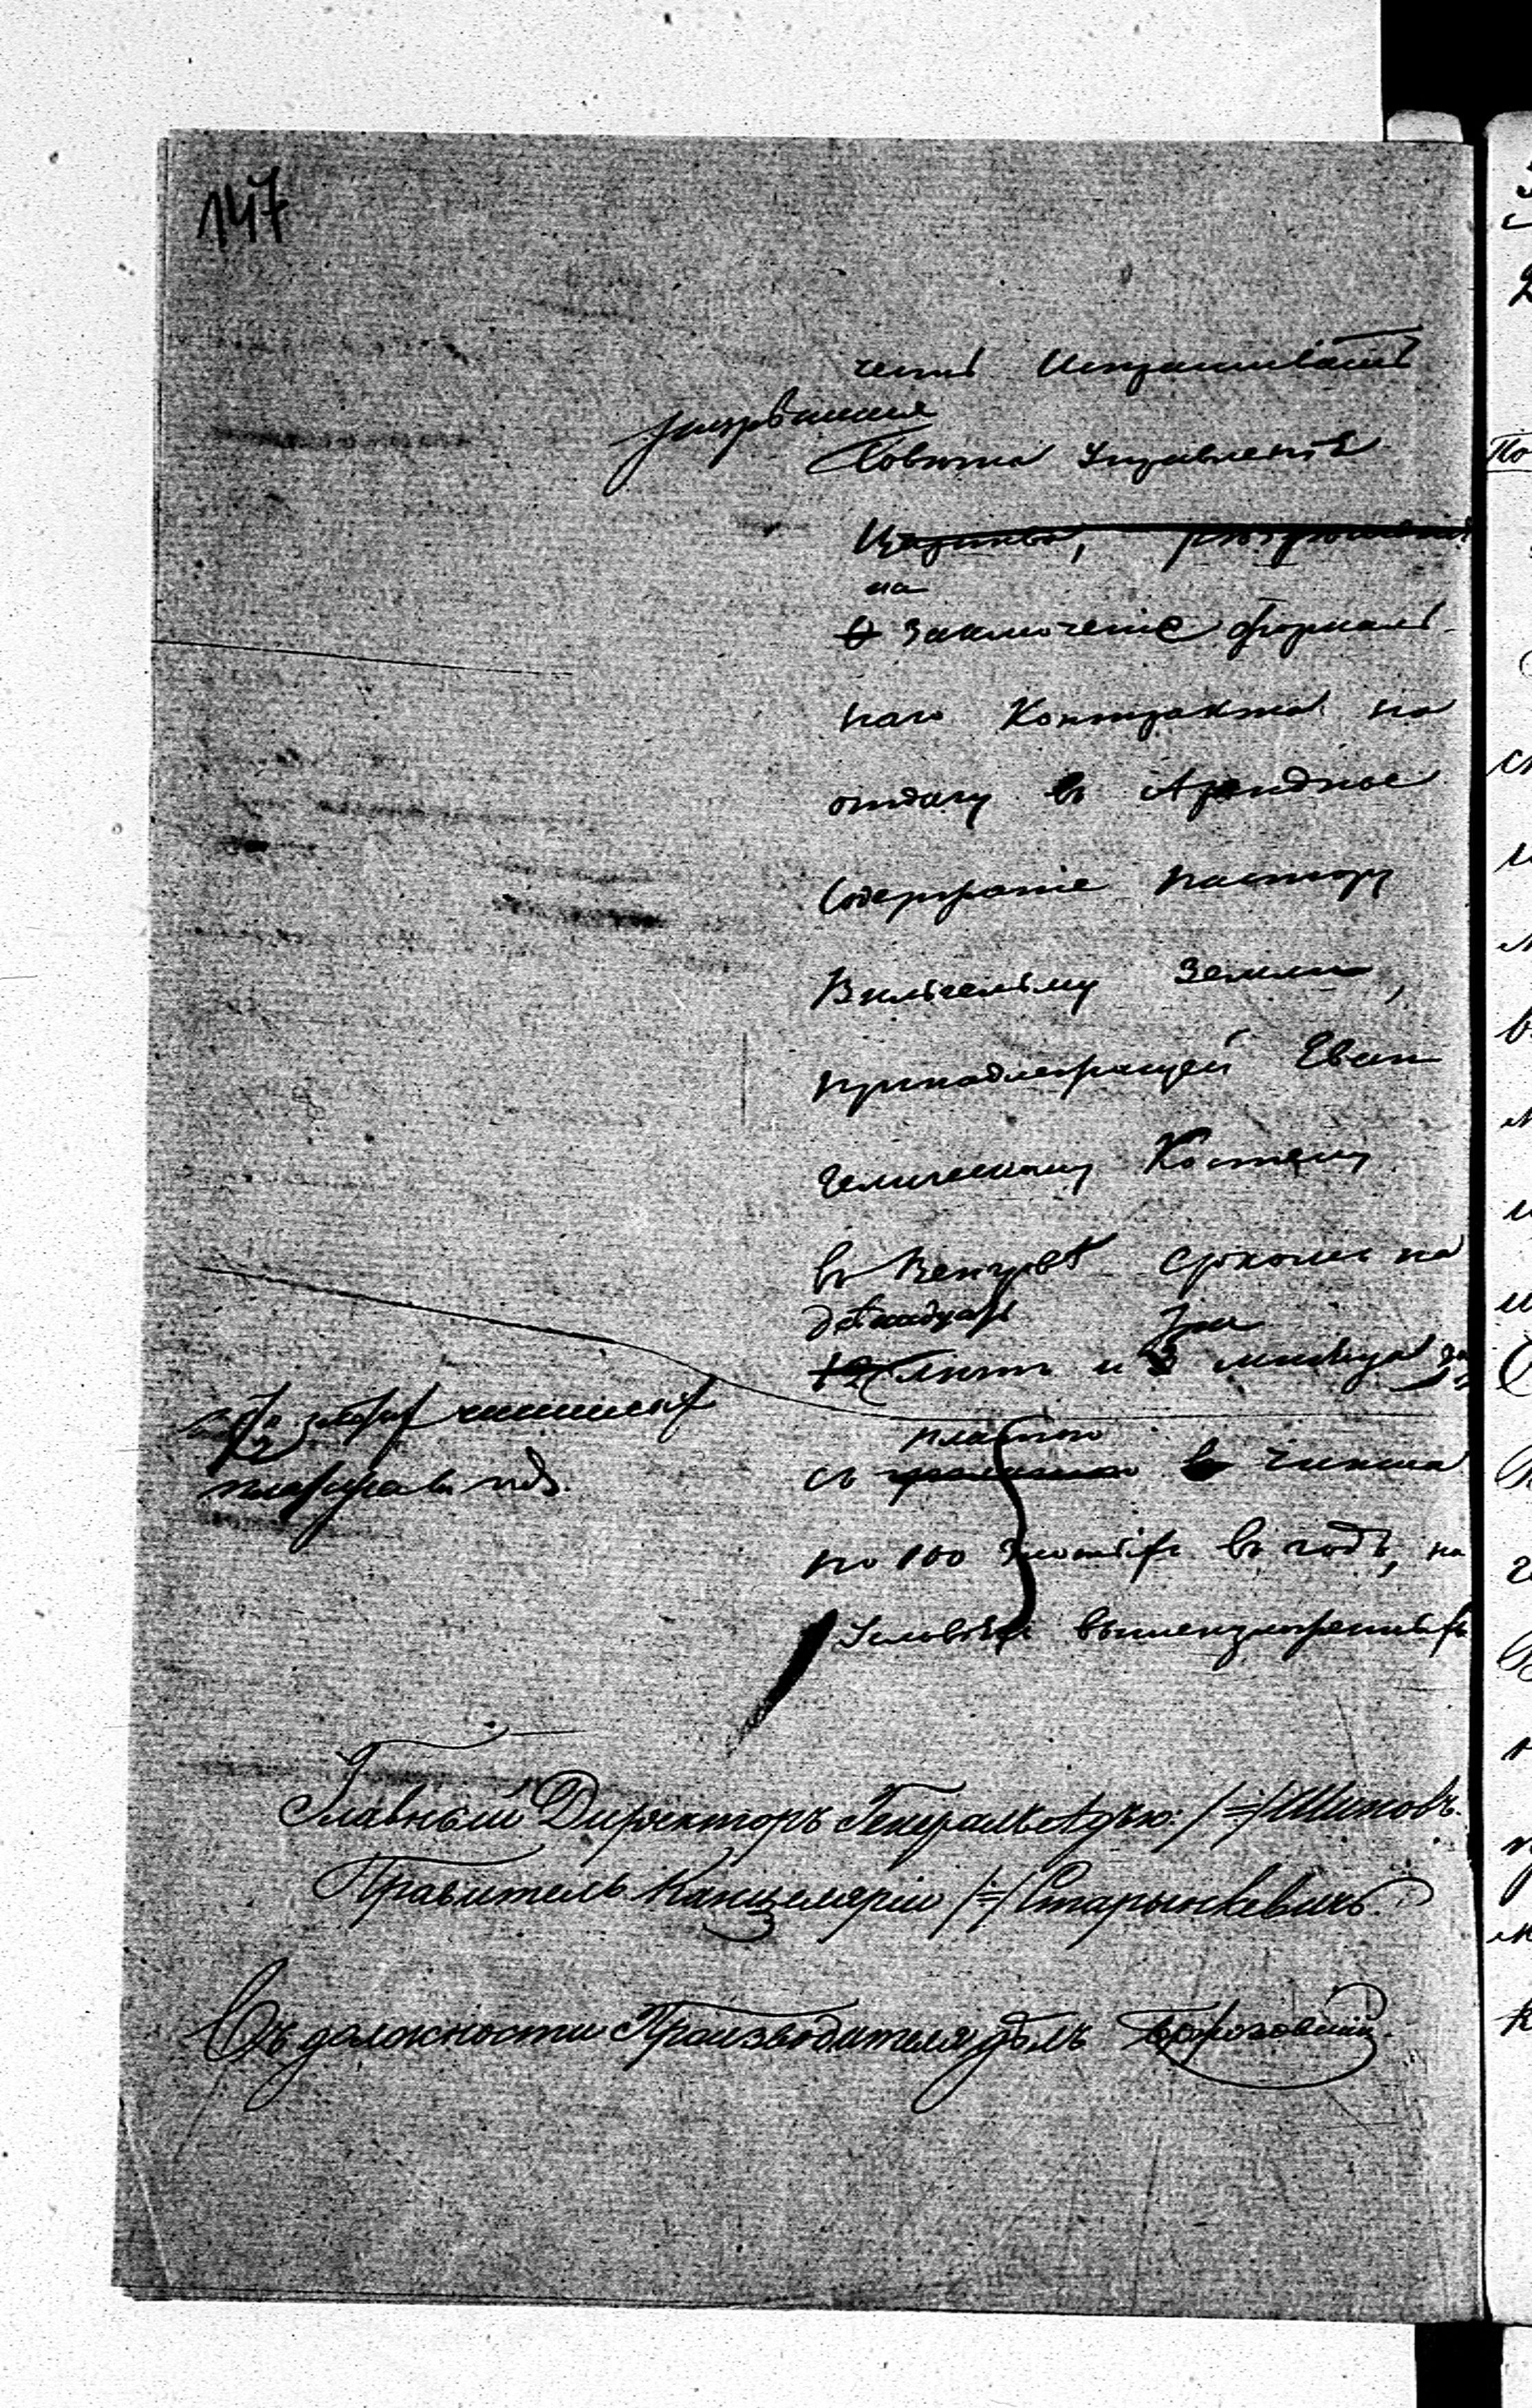 147
честь испрашивать
разрѣшенія
Совѣта Управленія
Царства,
на
заключеніе формаль-
наго Контракта на
отдачу въ Арендное
Содержаніе Пастору
земли,
принадлежащей Еван
гелическому Костелу
въ Венгровѣ срокомъ на
двѣнадцать три
12 лѣтъ и 3 мѣсяца
съ платою чинша
по 100 злотыхъ въ годъ, на
Условіяхъ вышеизложенныхъ
Главный Директоръ Генералъ-Адъю: /=/ Шиповъ.
Правитель Канцеляріи /=/ Старынкевичъ.
Въ должности Производителя дѣлъ